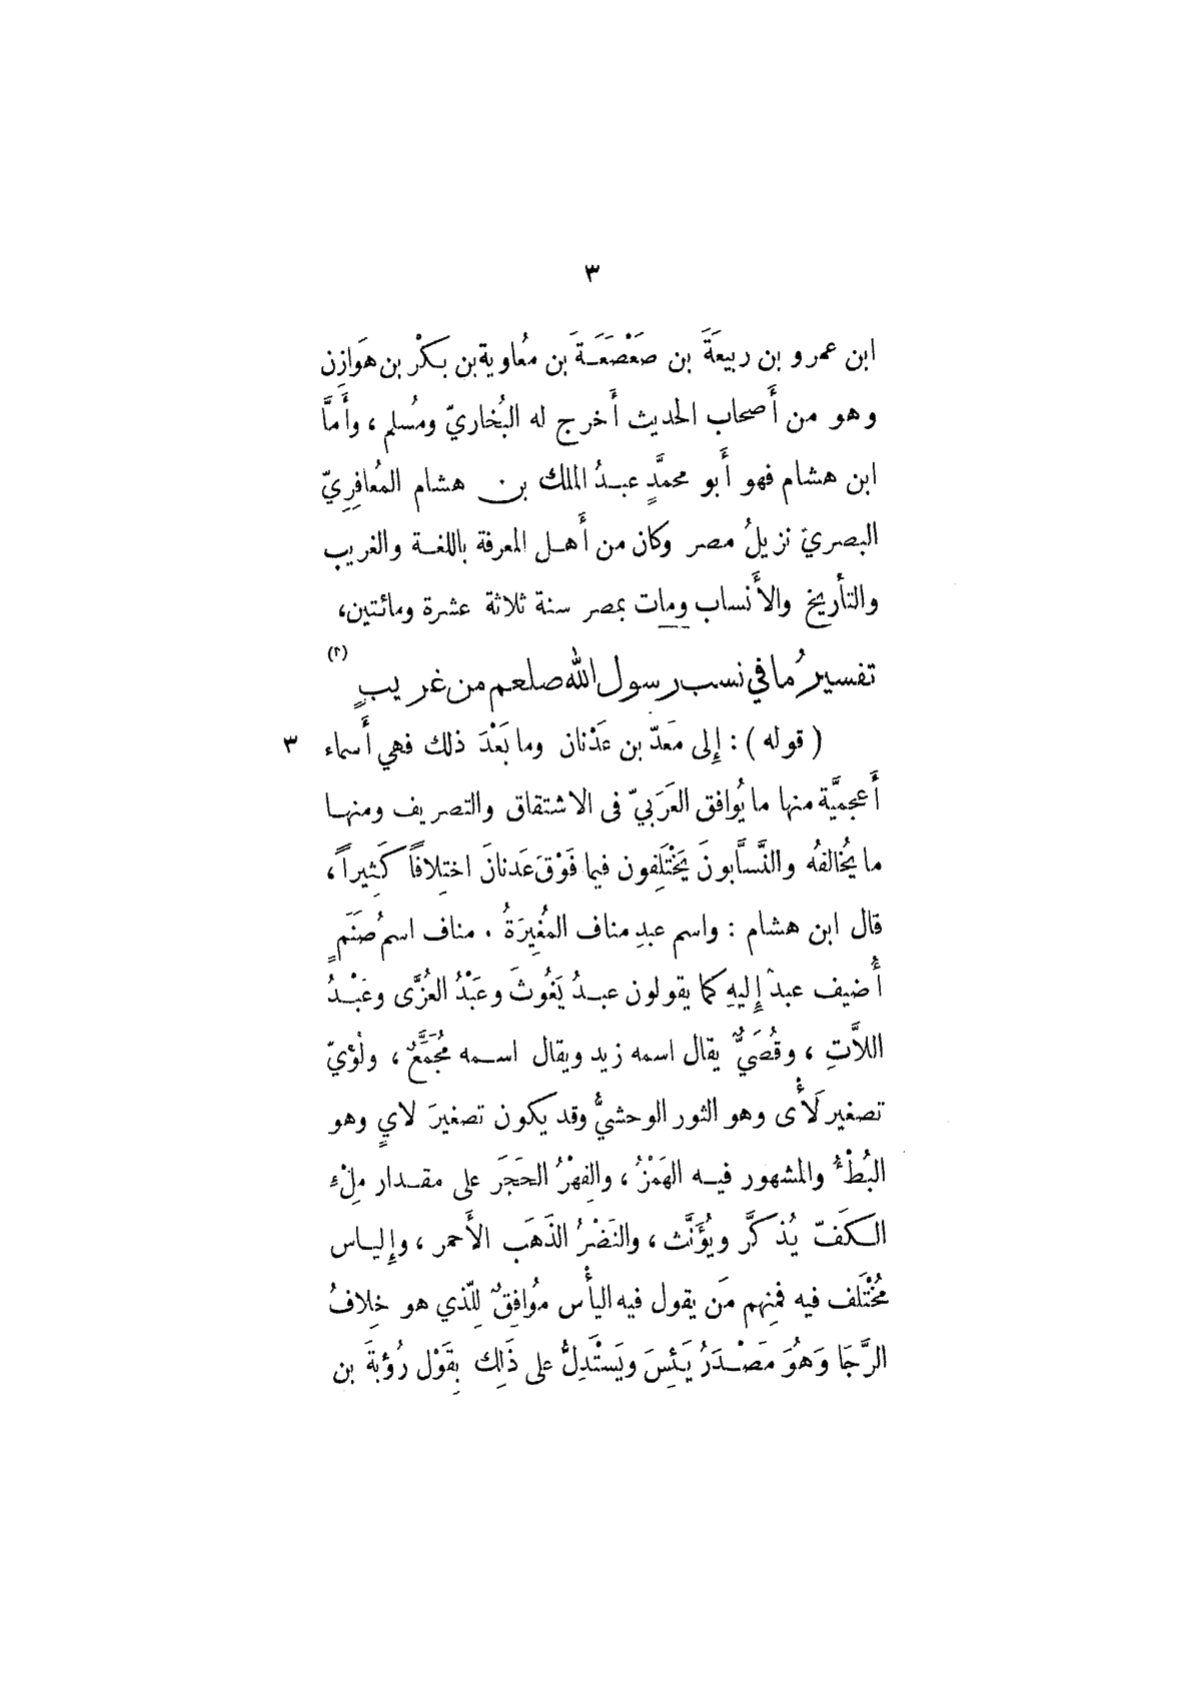 ٣
ابن عمرو بن ربيعَةَ بن صَعْصَعَةَ بن مُعاوية بن بَكْر بن هَوازِن
وهو من أَصحاب الحديث أَخرج له البُخاريّ ومُسلم ، وأَمَّا
ابن هشام فهو أَبو محمَّدٍ عبدُ الملك بن هشام المُعافِرِيّ
البصريّ نزيلُ مصر وكان من أَهل المعرفة باللغة والغريب
والتأريخ والأَنساب ومات بمصر سنة ثلاثة عشرة ومائتين،
تفسيرُ ما في نسب رسول الله صلعم من غريبٍ (٢)
( قوله ) : إلى مَعَدّ بن عَدْنان وما بَعْدَ ذلك فهي أَسماء ٣
أَعجميَّة منها ما يُوافق العَرَبيّ فى الاشتقاق والتصريف ومنها
ما يُخالفُه والنَّسَّابونَ يَخْتَلِفون فيما فَوْقَ عَدنانَ اختِلافًا كَثِيراً ،
قال ابن هشام : واسم عبدِ مناف المُغِيرَةُ . مناف اسمُ صَنَمٍ
أُضيف عبدٌ إِليهِ كما يقولون عبدُ يَغُوثَ وعَبْدُ العُزَّى وعَبْدُ
اللاَّتِ ، وقُصَيٌّ يقال اسمه زيد ويقال اسمه مُجَمَّعٌ ، ولُؤيّ
تصغير لَأْى وهو الثور الوحشيُّ وقد يكون تصغيرَ لايٍ وهو
البُطْءُ والمشهور فيه الهَمْزُ ، والفِهْرُ الحَجَرَ على مقدار مِلْءِ
الكَفّ يُذكَّر ويُؤَنَّث ، والنَضْرُ الذَهَب الأَحمر ، وإِلياس
مُخْتَلف فيه فمنهم مَن يقول فيه اليأْس مُوافِقٌ لِلّذي هو خِلافُ
الرَّجَا وَهُوَ مَصْدَرُ يَئِسَ ويَسْتَدِلُّ على ذَلِك بِقَوْل رُؤبةَ بن